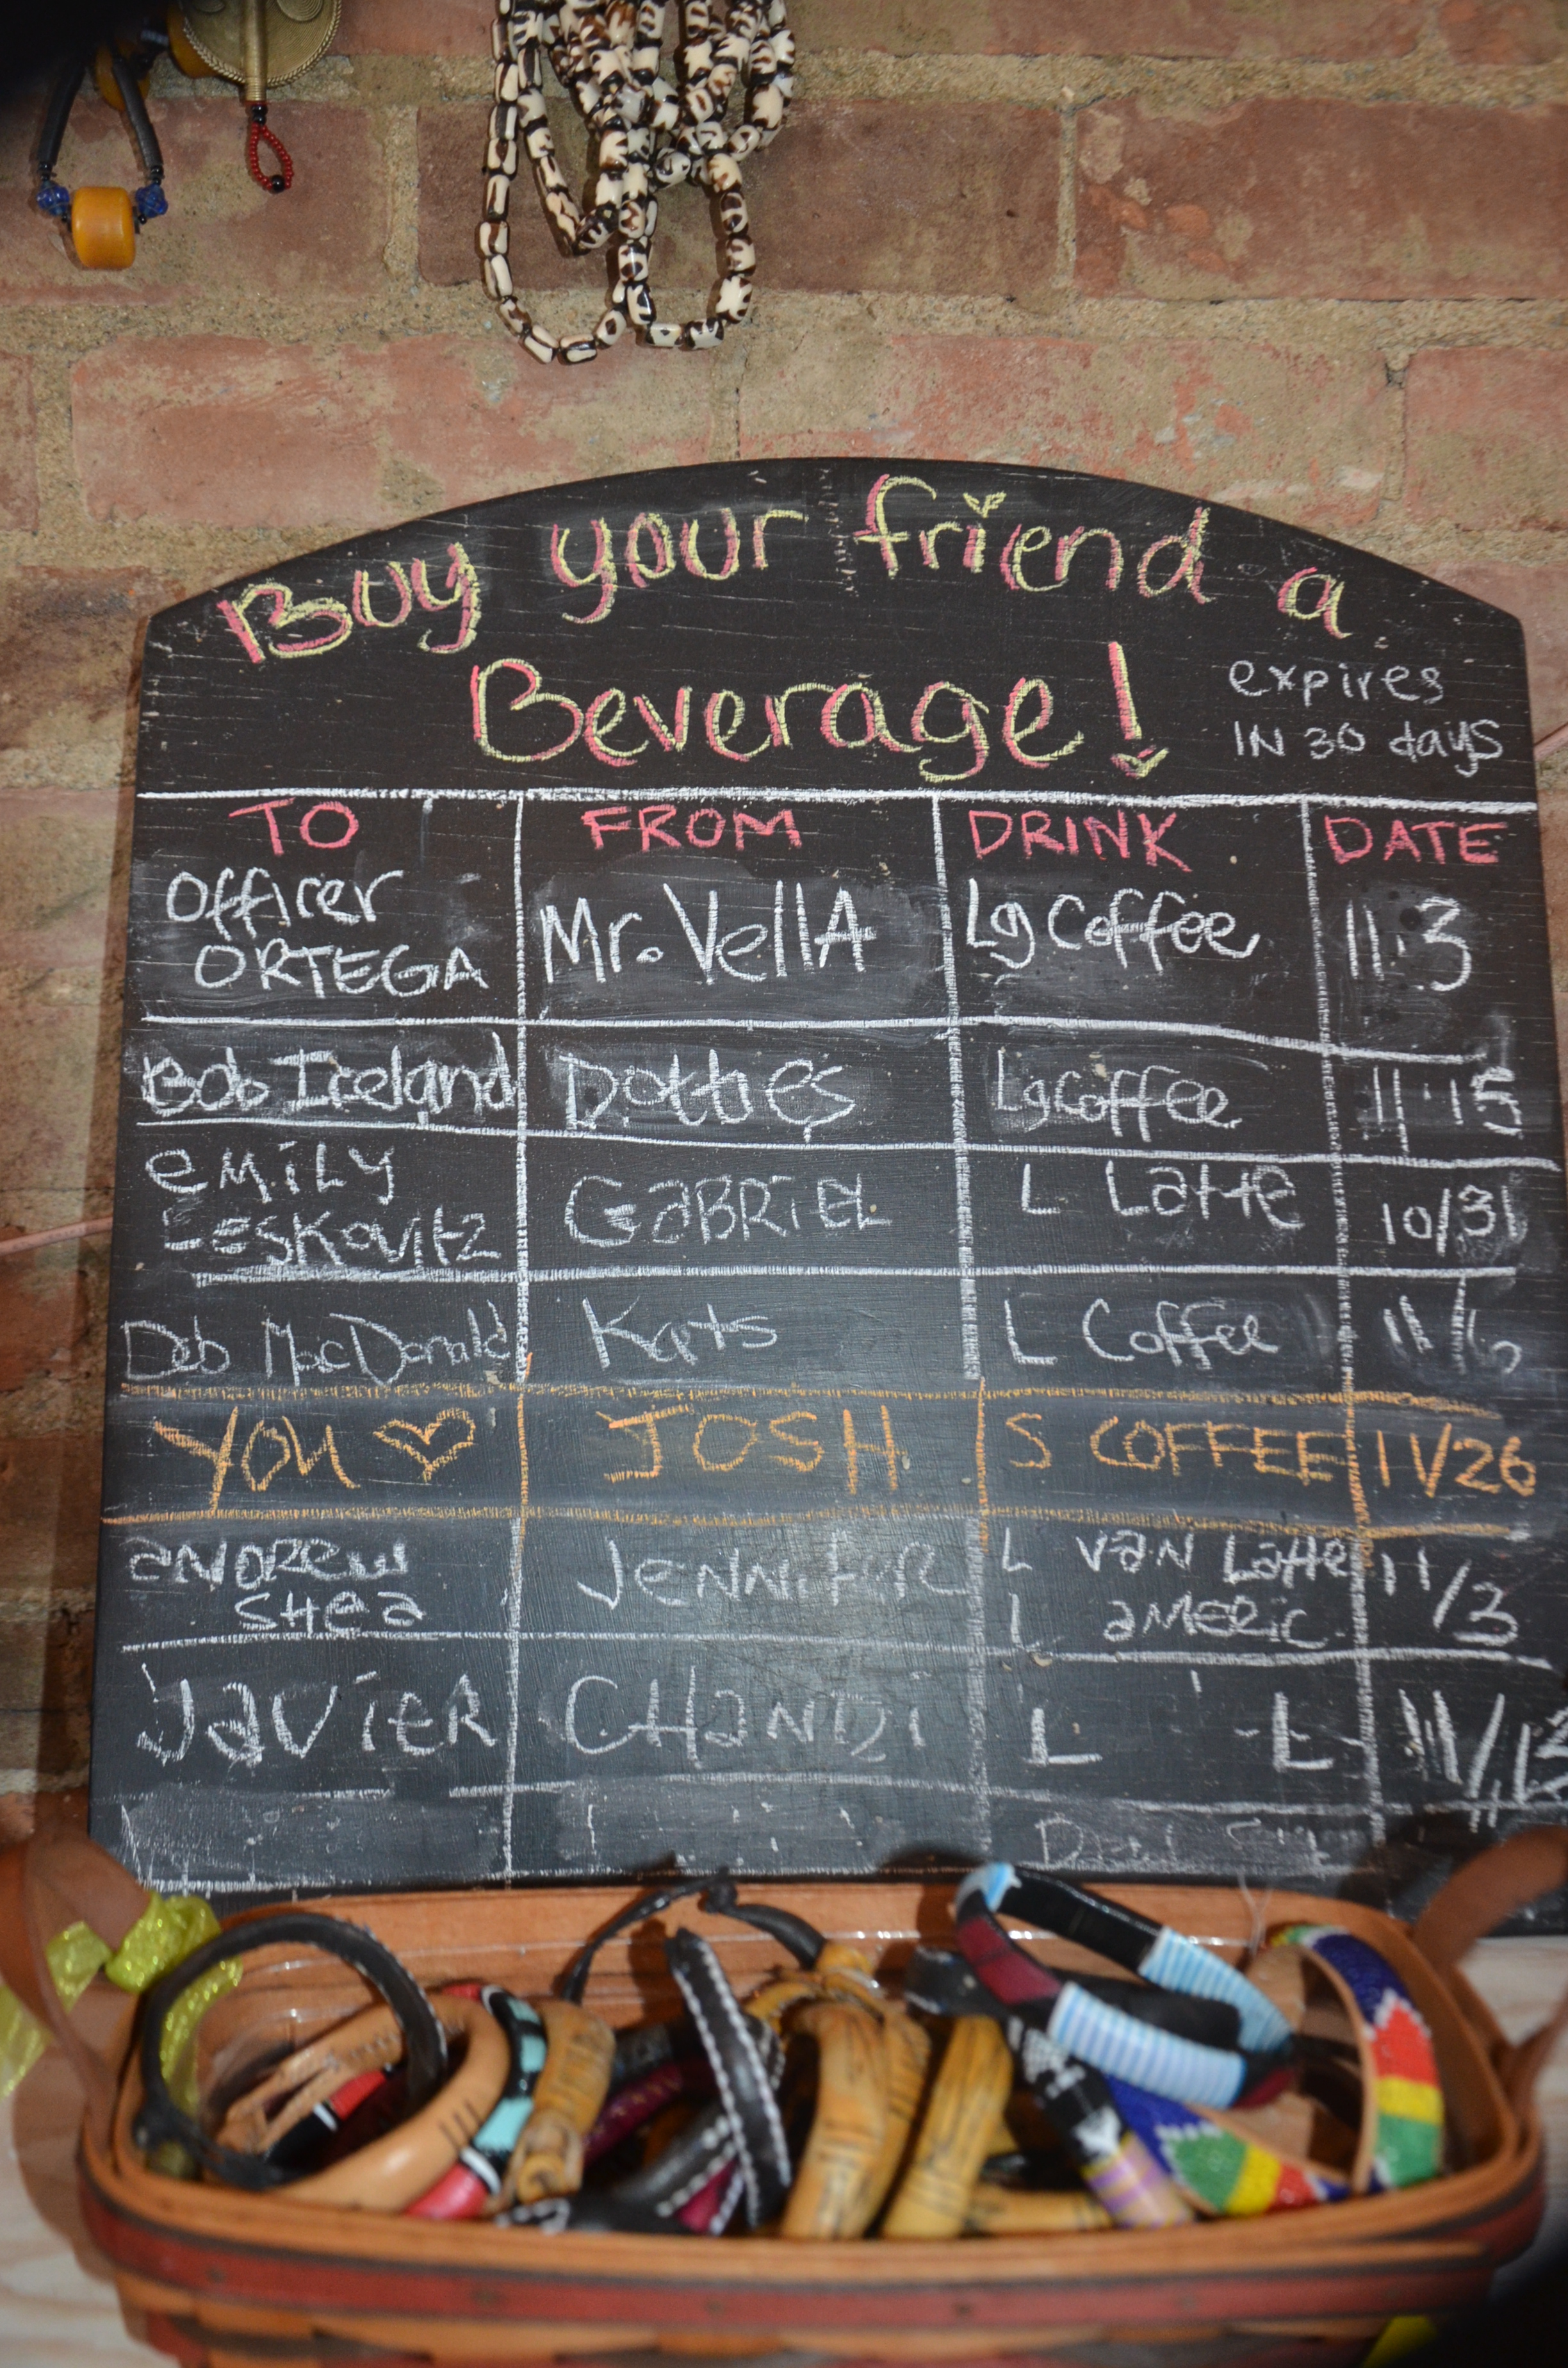 Buy your friend a
Beverage!
expires
IN 30 days
TO FROM DRINK DATE
Officer
ORTEGA Mr. VellA Lg Coffee 11.3
Bob Iceland Dottes Lg Coffee 11.15
eMiLy
LesKovitz GaBRiEL L Latte 10/31
Deb MacDonald Kats L Coffee
YOU JOSH S COFFEE 11/26
aNDREW
SHea JeNNifeR L VaN Latte
L aMERiC. 11/3
JaViER CHaNDi L L